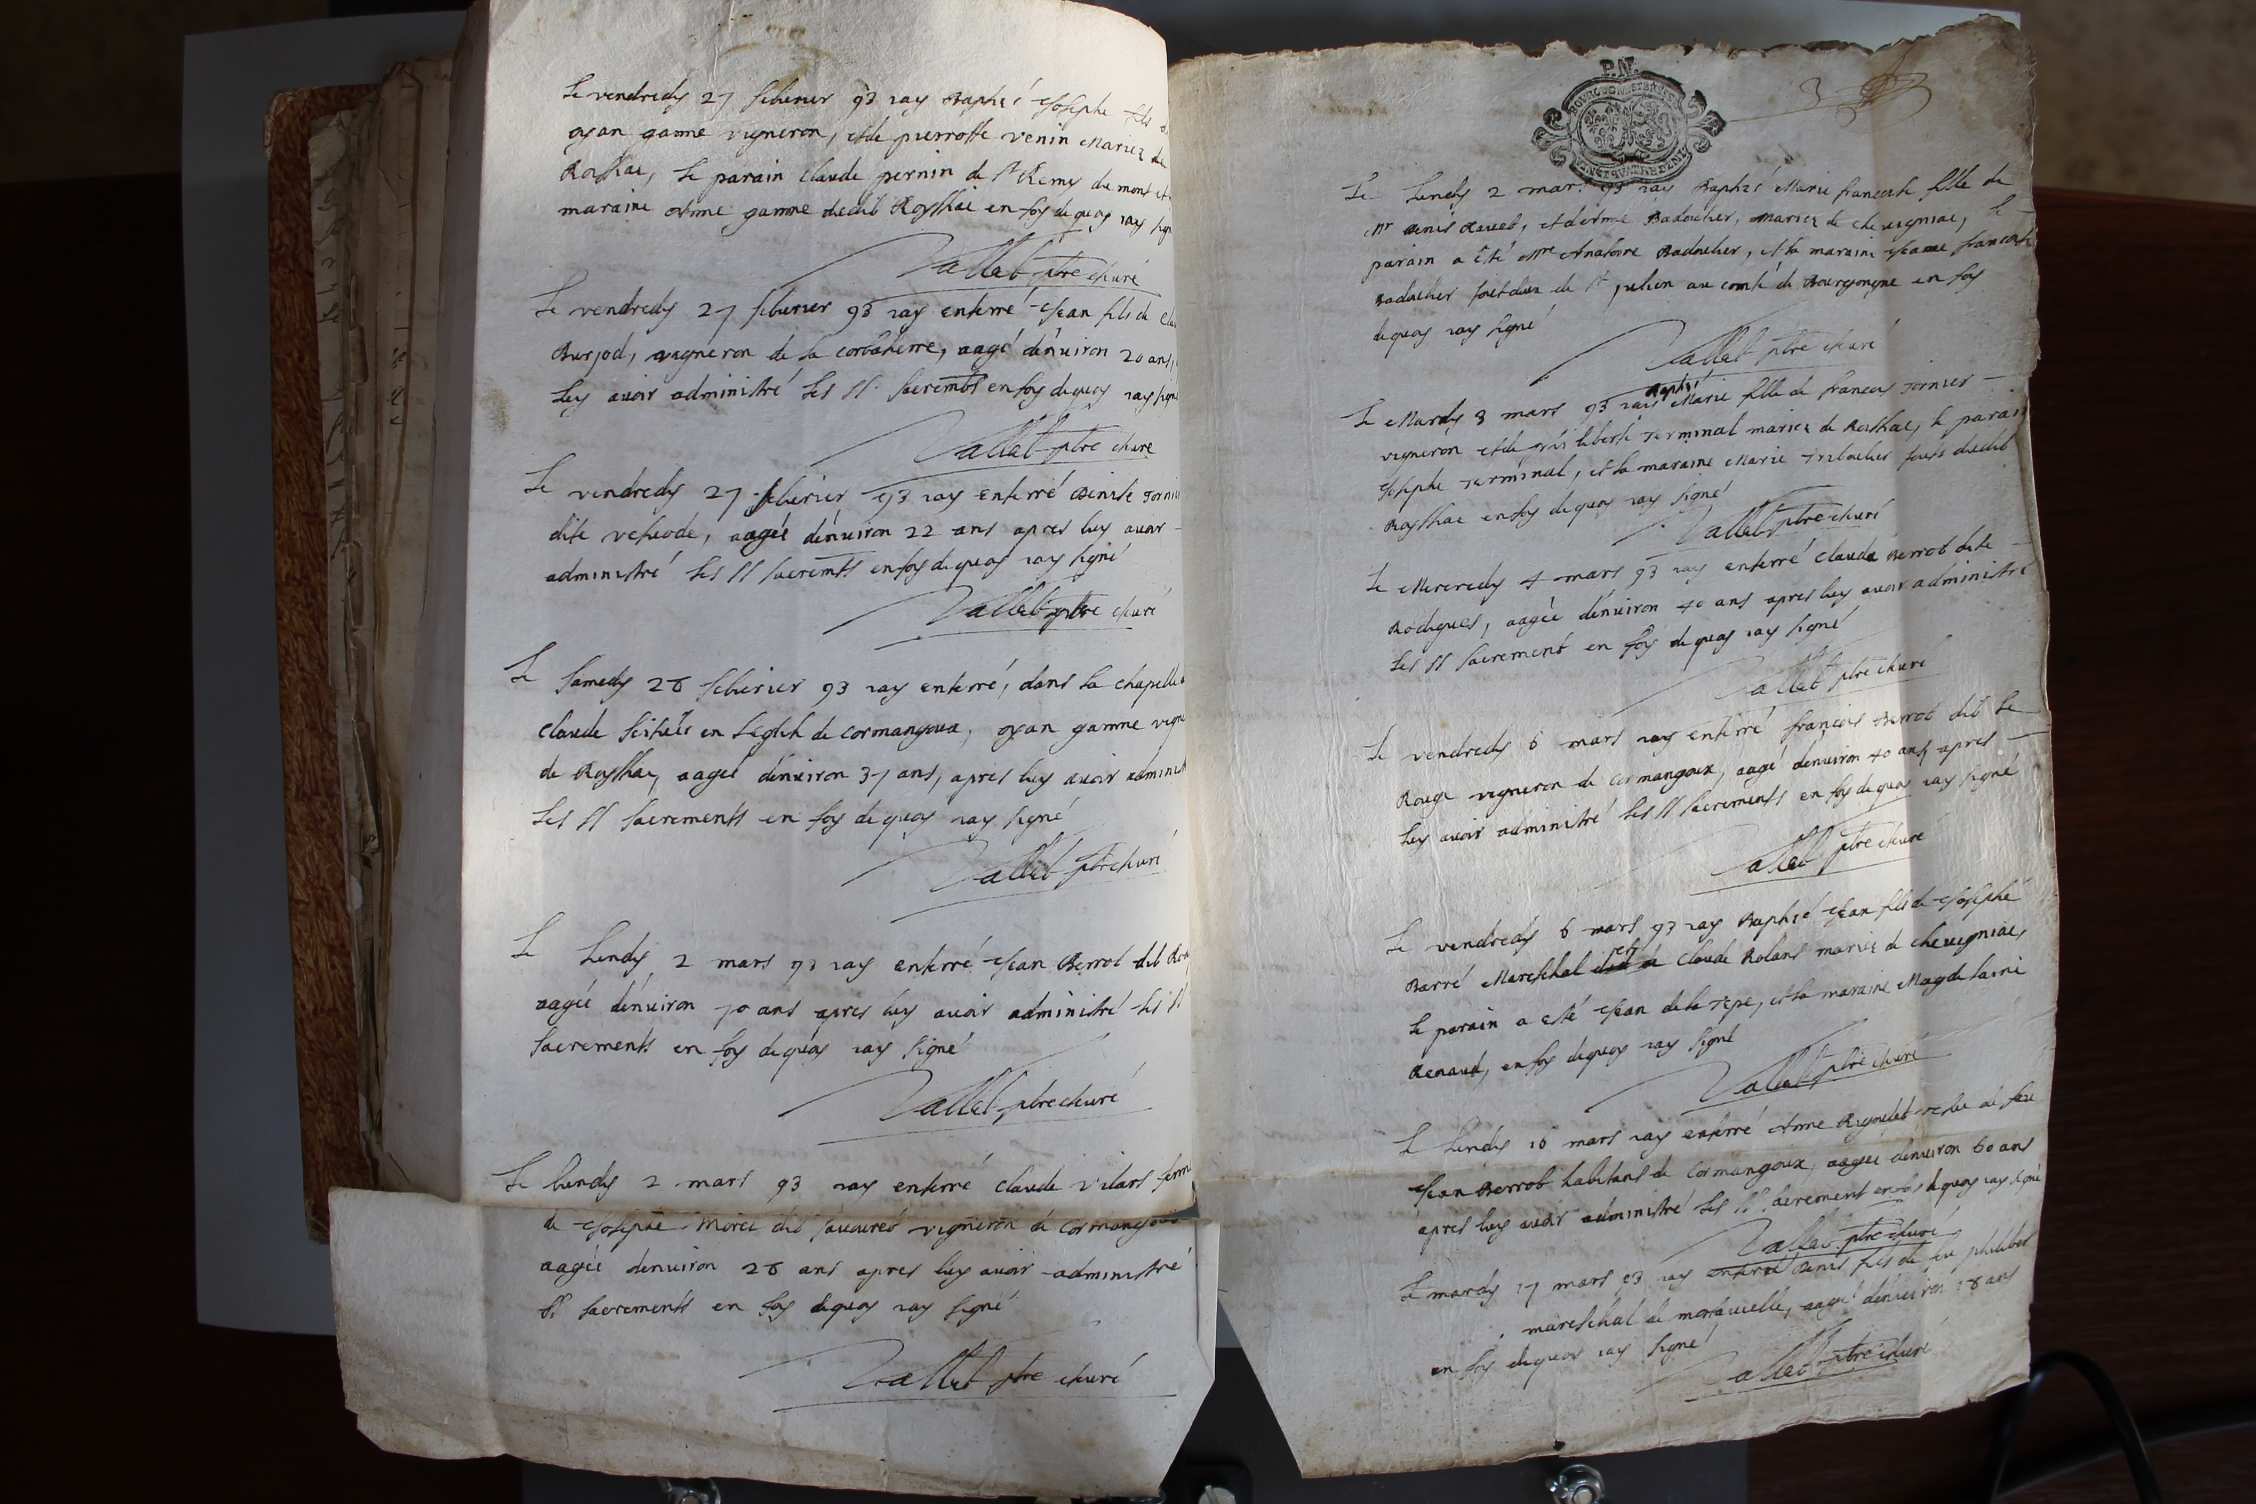 Le vendredy 27 febvrier 93 iay Baptisé Josephe fils d
oyan ganne vigneron, et de pierrotte venin Mariez de
Rosthai, le parain claude pernin de St Remy du mont et
maraine Anne ganne dudit Roysthai en foy de quoy iay sign
Vallet ptre curé
Le vendredy 27 febvrier 93 iay enterré Jean fils de Clau
Burjod, vigneron de la corbatiere, aagé d'enuiron 20 ans,
luy auoir administré les SS. sacremts en foy de quoy iay signé
Vallet ptre curé
Le vendredy 27 febvrier 93 iay enterré Denise Tornier
dite, aagée d'enuiron 22 ans apres luy auoir
administré les SS sacremts en foy de quoy iay signé
Vallet ptre curé
Le samedy 28 febvrier 93 iay enterré, dans la chapelle
claude en l'eglise de cormangoux, oyan ganne vigne
de Roysthai, aagé d'enuiron 37 ans, apres luy auoir administ
les SS sacrements en foy de quoy iay signé
Vallet ptre curé
Le Lundy 2 mars 93 iay enterré Jean Berrot dit Ro
aagée d'enuiron 70 ans apres luy auoir administré les SS
sacrements en foy de quoy iay signé
Vallet ptre curé
Le lundy 2 mars 93 iay enterré claude vilars femm
de Josephe Morel dit vigneron de Cormangoux
aagée d'enuiron 28 ans apres luy auoir administré
SS sacrements en foy de quoy iay signé
Vallet ptre curé
P.N.
3
Le Lundy 2 mars 93 iay Baptisé Marie françoise fille de
Mr Denis Rauet, et d'Anne Badoulier, mariez de cheuigniat, le
parain a été Mre Anatoire Badoulier, et la maraine Jeanne françoise
Badoulier tous deux de St julien au comté de Bourgongne en foy
de quoy iay signé
Vallet ptre curé
Baptisé
Le Mardy 3 mars 93 iay Marie fille de francois Tornier
vigneron et de philiberte Terminal mariez de Rosthai, le parain
Josephe Terminal, et la maraine Marie Tribollier touts dudit
Roysthai en foy de quoy iay signé
Vallet ptre curé
Le Mercredy 4 mars 93 iay enterré Clauda Berrot dite
Rodigues, aagée d'enuiron 40 ans apres luy auoir administré
les SS sacrement en foy de quoy iay signé
Vallet ptre curé
Le vendredy 6 mars iay enterré françois Berrot dit le
Rouge vigneron de Cormangoux, aagé d'enuiron 40 ans, apres
luy auoir administré les SS sacrements en foy de quoy iay signé
Vallet ptre curé
Le vendredy 6 mars 93 iay Baptisé Jean fils de Josephe
Barré Mareschal et de Claude Rolans mariez de cheuigniat,
le parain a esté Jean de la Tepe, et la maraine Magdelaine
Renaud, en foy de quoy iay signé
Vallet ptre curé
Le Lundy 16 mars iay enterré Anne Reynelet vefue de feu
Jean Berrot habitans de Cormangoux, aagée d'enuiron 60 ans
apres luy auoir administré les SS sacrement en foy de quoy iay signé
Vallet ptre curé
Le mardy 17 mars 93 iay enterré Denis fils de feu philibert
mareschal de, aagé d'enuiron 18 ans
en foy de quoy iay signé
Vallet ptre curé